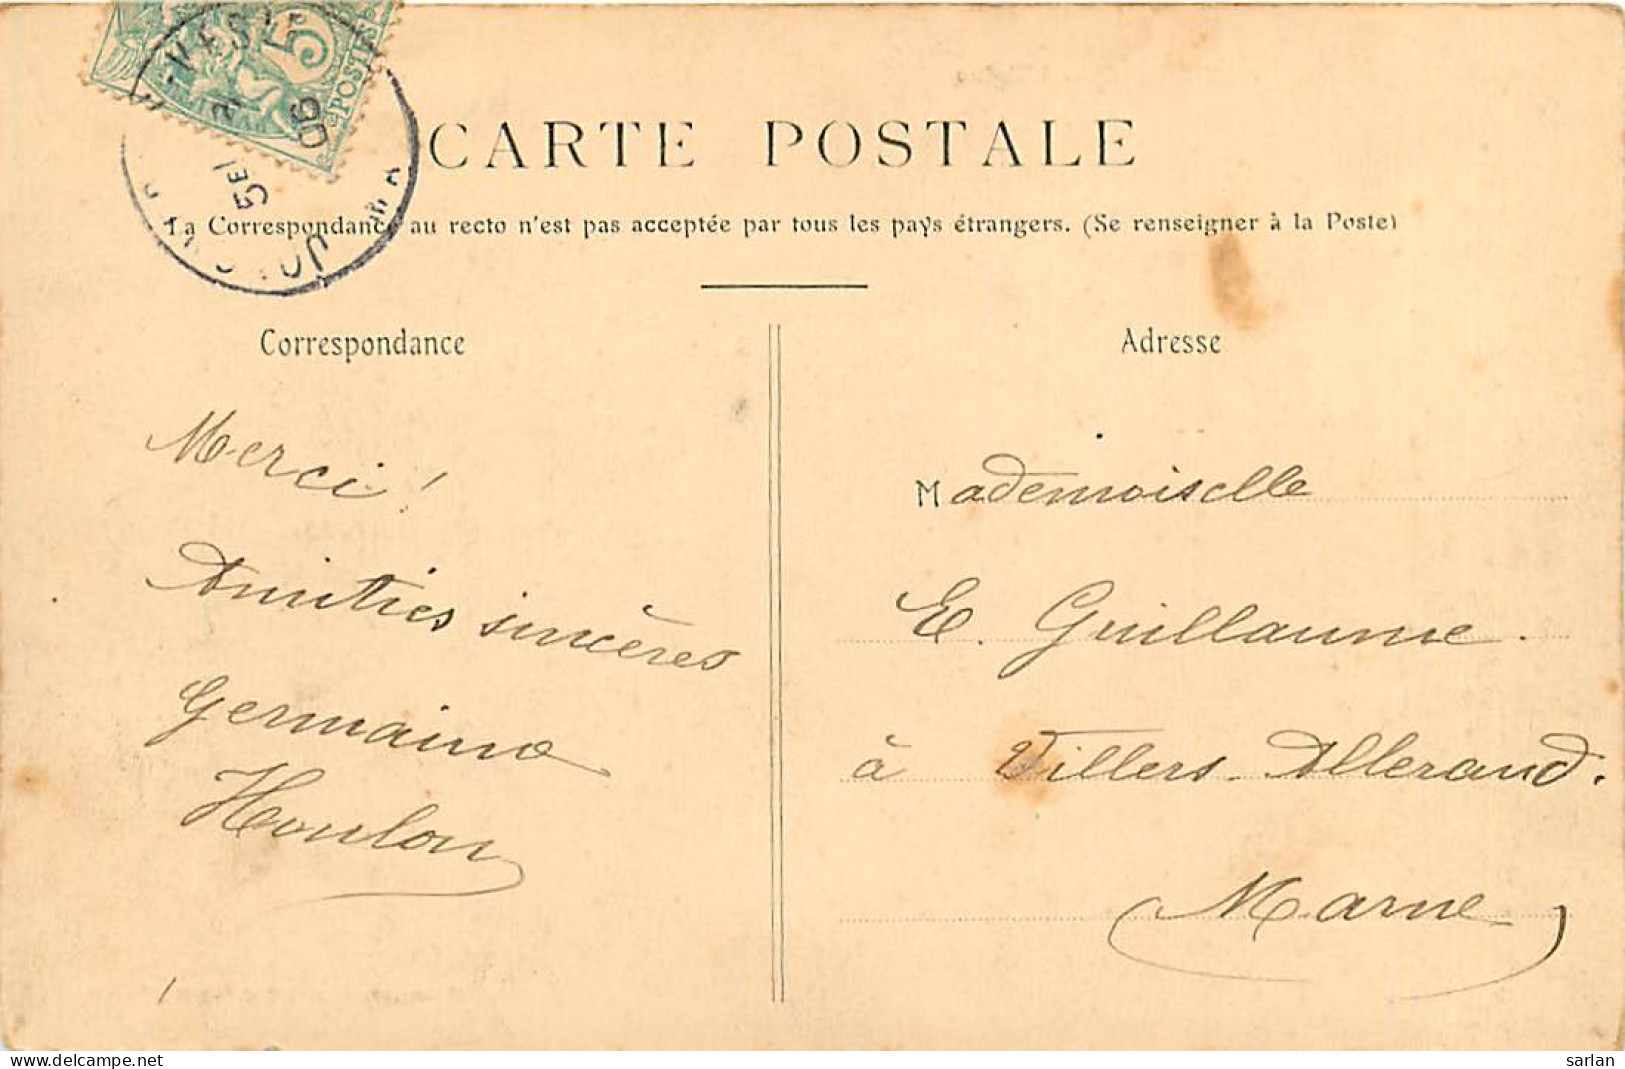 5
POSTES
06
CARTE POSTALE
La Correspondance au recto n'est pas acceptée par tous les pays étrangers. (Se renseigner à la Poste)
Correspondance
Merci !
Amitiés sincères
Germaine
Houlon
Adresse
Mademoiselle
E. Guillaume.
à Villers-Allerand.
Marne
sarlan